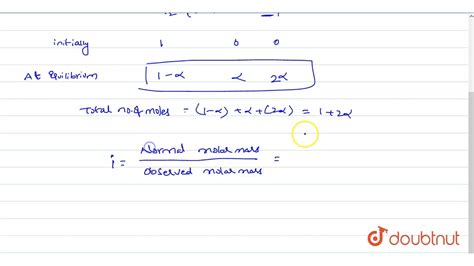 initially 1 0 0
At Equilibrium 1-α α 2α
Total no.of moles = (1-α) + α + (2α) = 1 + 2α
i = Normal molar mass / observed molar mass =
doubtnut